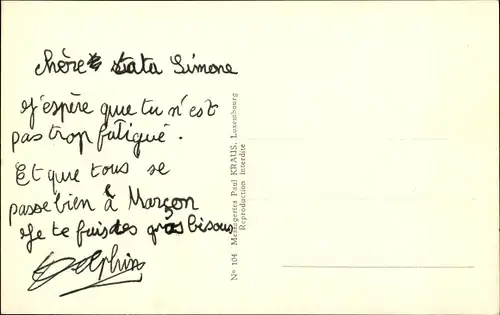 chère tata Simone
J'espère que tu n'est
pas trop fatigué.
Et que tous se
passe bien à Marçon
Je te fais des gros bisous
Delphine
Nº 104 Messageries Paul KRAUS, Luxembourg
Reproduction interdite